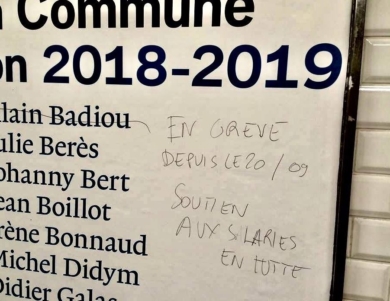 Commune
on 2018-2019
lain Badiou
ulie Berès
ohanny Bert
ean Boillot
rène Bonnaud
Michel Didym
Didier Galas
EN GREVE
DEPUIS LE 20/09
SOUTIEN
AUX SALARIES
EN LUTTE